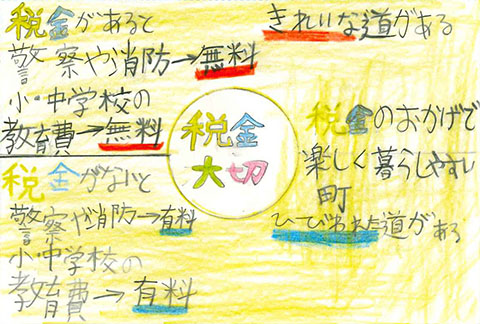 税金があると
警察や消防→無料
小・中学校の
教育費→無料
税金がないと
警察や消防→有料
小・中学校の
教育費→有料
税金
大切
きれいな道がある
税金のおかげで
楽しく暮らしやすい
町
ひーびわれた道がある